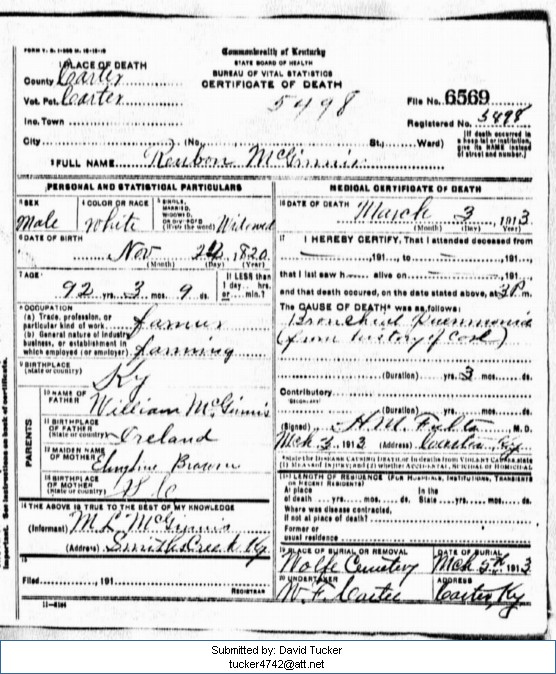 FORM V. S. 1-
Commonwealth of Kentucky
STATE BOARD OF HEALTH
BUREAU OF VITAL STATISTICS
CERTIFICATE OF DEATH
1 PLACE OF DEATH
County Carter
Vot. Pct. Carter
5498
File No. 6569
Registered No. 5498
Inc. Town
City (No. St., Ward)
(If death occurred in a hospital or institution, give its NAME instead of street and number.)
2 FULL NAME Reubon McGinnis
PERSONAL AND STATISTICAL PARTICULARS
3 SEX
Male
4 COLOR OR RACE
White
5 SINGLE, MARRIED, WIDOWED, OR DIVORCED
(Write the word) Widowed
6 DATE OF BIRTH
Nov 24, 1820
(Month) (Day) (Year)
7 AGE
92 yrs. 3 mos. 9 ds.
If LESS than 1 day hrs. or min.?
8 OCCUPATION
(a) Trade, profession, or particular kind of work farmer
(b) General nature of industry business, or establishment in which employed (or employer) farming
9 BIRTHPLACE
(State or country) Ky
PARENTS
10 NAME OF FATHER
William McGinnis
11 BIRTHPLACE OF FATHER
(State or country)
12 MAIDEN NAME OF MOTHER
Brown
13 BIRTHPLACE OF MOTHER
(State or country)
14 THE ABOVE IS TRUE TO THE BEST OF MY KNOWLEDGE
(Informant) M L McGinnis
(Address) Smiths Creek Ky
15
Filed , 191
REGISTRAR
11-
MEDICAL CERTIFICATE OF DEATH
16 DATE OF DEATH
March 3, 1913
(Month) (Day) (Year)
17 I HEREBY CERTIFY, That I attended deceased from
, 191, to , 191,
that I last saw h alive on , 191,
and that death occured, on the date stated above, at 3 P m.
The CAUSE OF DEATH* was as follows:
Bronchial Pneumonia
(from history of case)
(Duration) yrs. 3 mos. ds.
Contributory
(Duration) yrs. mos. ds.
(Signed) H.M. M.D.
Mch 3, 1913 (Address) Ky
*State the DISEASE CAUSING DEATH, or in deaths from VIOLENT CAUSES state (1) MEANS OF INJURY; and (2) whether ACCIDENTAL, SUICIDAL or HOMICIDAL
18 LENGTH OF RESIDENCE (FOR HOSPITALS, INSTITUTIONS, TRANSIENTS OR RECENT RESIDENTS)
At place of death yrs. mos. ds. In the State yrs. mos. ds.
Where was disease contracted,
If not at place of death?
Former or usual residence
19 PLACE OF BURIAL OR REMOVAL
Wolfe Cemetery
DATE OF BURIAL
Mch 5th 1913
20 UNDERTAKER
W. F. Carter
ADDRESS
Carter, Ky
Submitted by: David Tucker
tucker4742@att.net